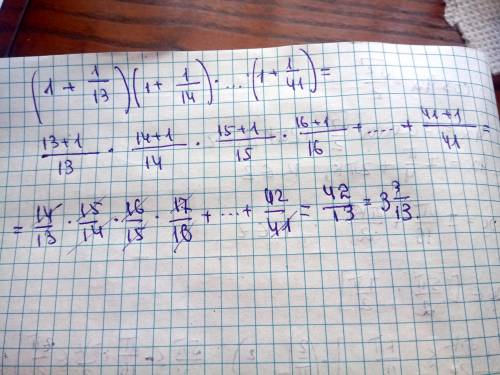 (1 + 1/13)(1 + 1/14) · ... · (1 + 1/41) =
13+1/13 · 14+1/14 · 15+1/15 · 16+1/16 + ..... + 41+1/41 =
= 14/13 · 15/14 · 16/15 · 17/16 + ... + 42/41 = 42/13 = 3 3/13